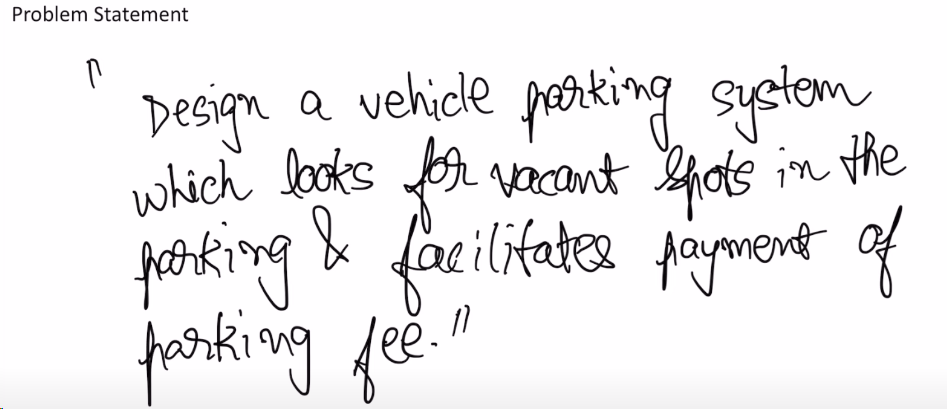 Problem Statement
"Design a vehicle parking system
which looks for vacant spots in the
parking & facilitates payment of
parking fee."